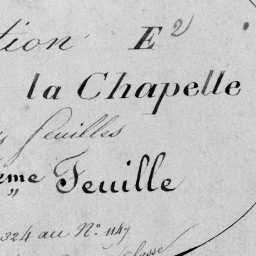 tion E 2
la Chapelle
Feuilles
ème Feuille
324 au N° 1147
classe